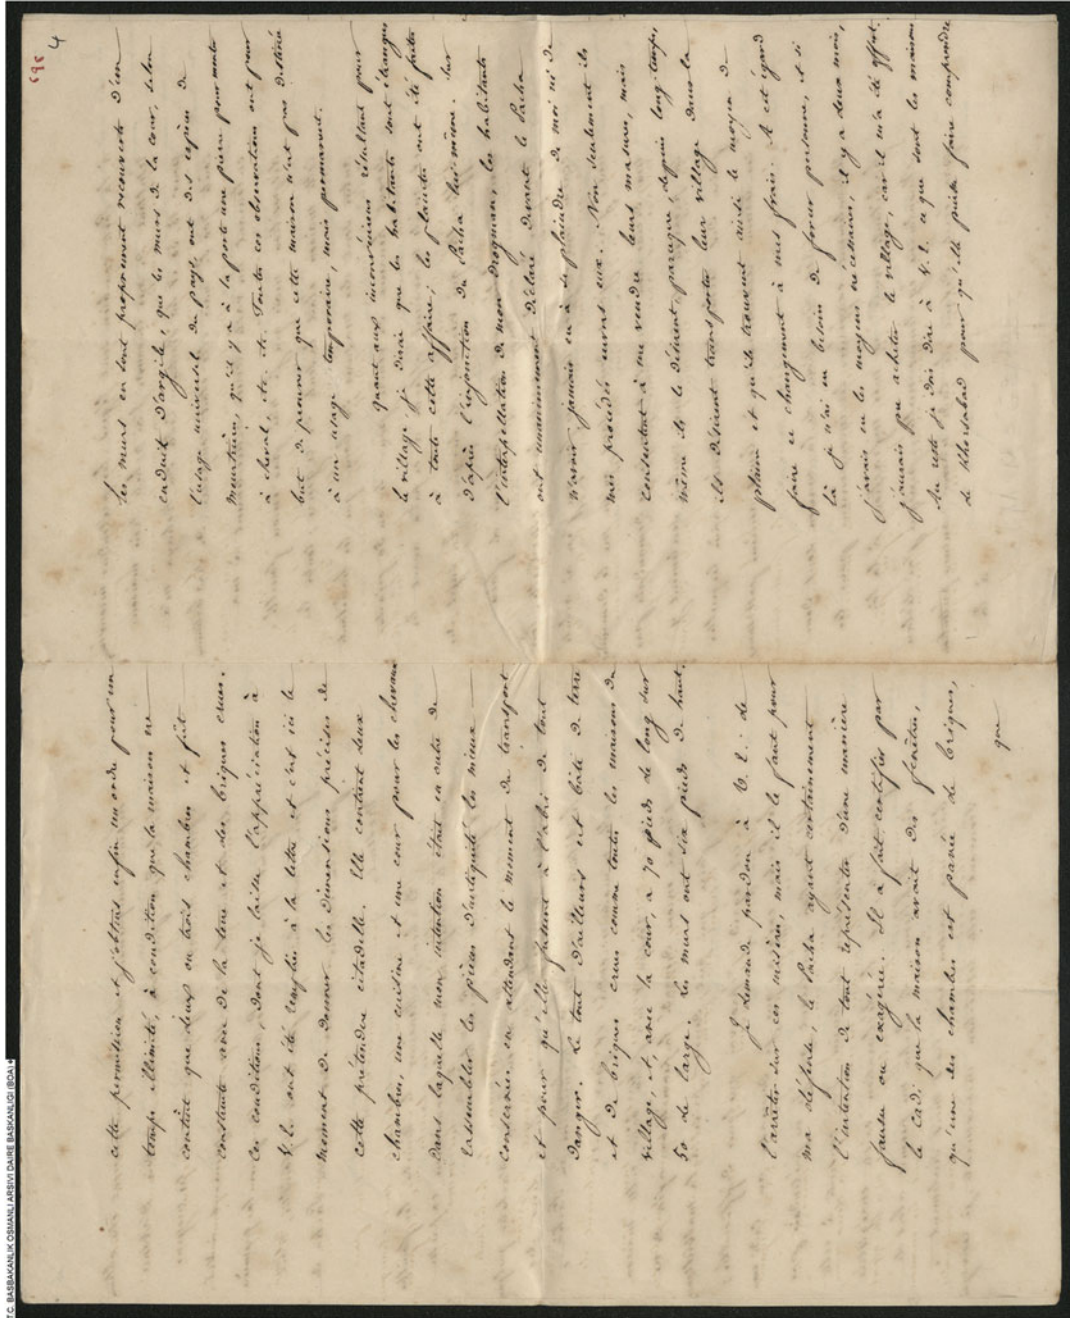 cette permission et j'obtins enfin un ordre pour un
temps illimité, à condition que la maison ne
contînt que deux ou trois chambres et fût
construite avec de la terre et des briques crues.
Ces conditions, dont je laisse l'appréciation à
V. E. ont été remplies à la lettre et c'est ici le
moment de donner les dimensions précises de
cette prétendue citadelle. Elle contient deux
chambres, une cuisine et une cour pour les chevaux
dans laquelle mon intention était en outre de
rassembler les pièces d'antiquité les mieux
conservées en attendant le moment du transport
et pour qu'elles fussent à l'abri de tout
danger. Le tout d'ailleurs est bâti de terre
et de briques crues comme toutes les maisons du
village, et, avec la cour, a 70 pieds de long sur
50 de large. Les murs ont six pieds de haut.
Je demande pardon à V. E. de
l'arrêter sur ces misères, mais il le faut pour
ma défense, le Pacha ayant certainement
l'intention de tout représenter d'une manière
fausse ou exagérée. Il a fait certifier par
le Cadi que la maison avait des fenêtres,
qu'une des chambres est pavée de briques,
que
696
4
les murs en sont proprement recouverts d'un
enduit d'argile, que les murs de la cour, selon
l'usage universel du pays, ont des espèces de
meurtrières, qu'il y a à la porte une pierre pour monter
à cheval, etc. etc. Toutes ces observations ont pour
but de prouver que cette maison n'est pas destinée
à un usage temporaire, mais permanent.
Quant aux inconvéniens résultant pour
le village, je dirai que les habitants sont étrangers
à toute cette affaire; les plaintes ont été faites
d'après l'injonction du Pacha lui même. Sur
l'interpellation de mon drogman, les habitants
ont unanimement déclaré devant le Pacha
n'avoir jamais eu à se plaindre de moi ni de
mes procédés envers eux. Non seulement ils
consentent à me vendre leurs masures, mais
même ils le désirent, parceque, depuis long-temps,
ils désirent transporter leur village dans la
plaine et qu'ils trouvent ainsi le moyen de
faire ce changement à mes frais. A cet égard
là je n'ai eu besoin de forcer personne, et si
j'avais eu les moyens nécessaires, il y a deux mois,
j'aurais pu acheter le village, car il m'a été offert.
Au reste je dois dire à V. E. ce que sont les maisons
de Khorsabad pour qu'elle puisse faire comprendre
T.C. BASBAKANLIK OSMANLI ARSIVI DAIRE BASKANLIGI (BOA)